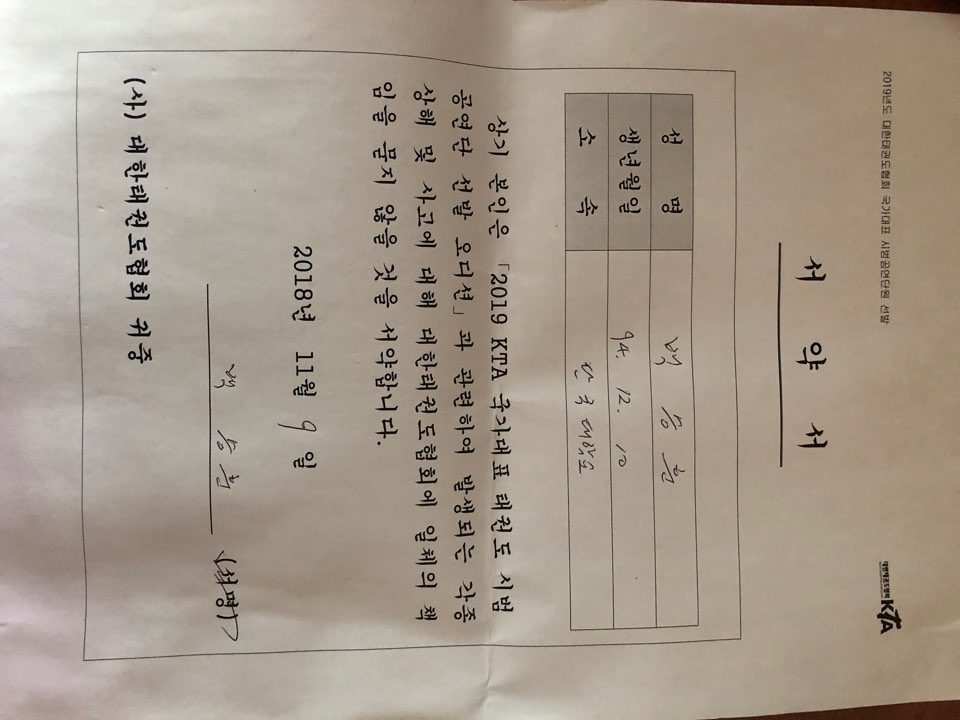 2019년도 대한태권도협회 국가대표 시범공연단원 선발
대한태권도협회
KTA
서 약 서
성 명 백 승 훈
생년월일 94. 12. 10
소 속 단국대학교
상기 본인은 「2019 KTA 국가대표 태권도 시범
공연단 선발 오디션」과 관련하여 발생되는 각종
상해 및 사고에 대해 대한태권도협회에 일체의 책
임을 묻지 않을 것을 서약합니다.
2018년 11월 9일
백 승 훈 (서명)
(사) 대한태권도협회 귀중